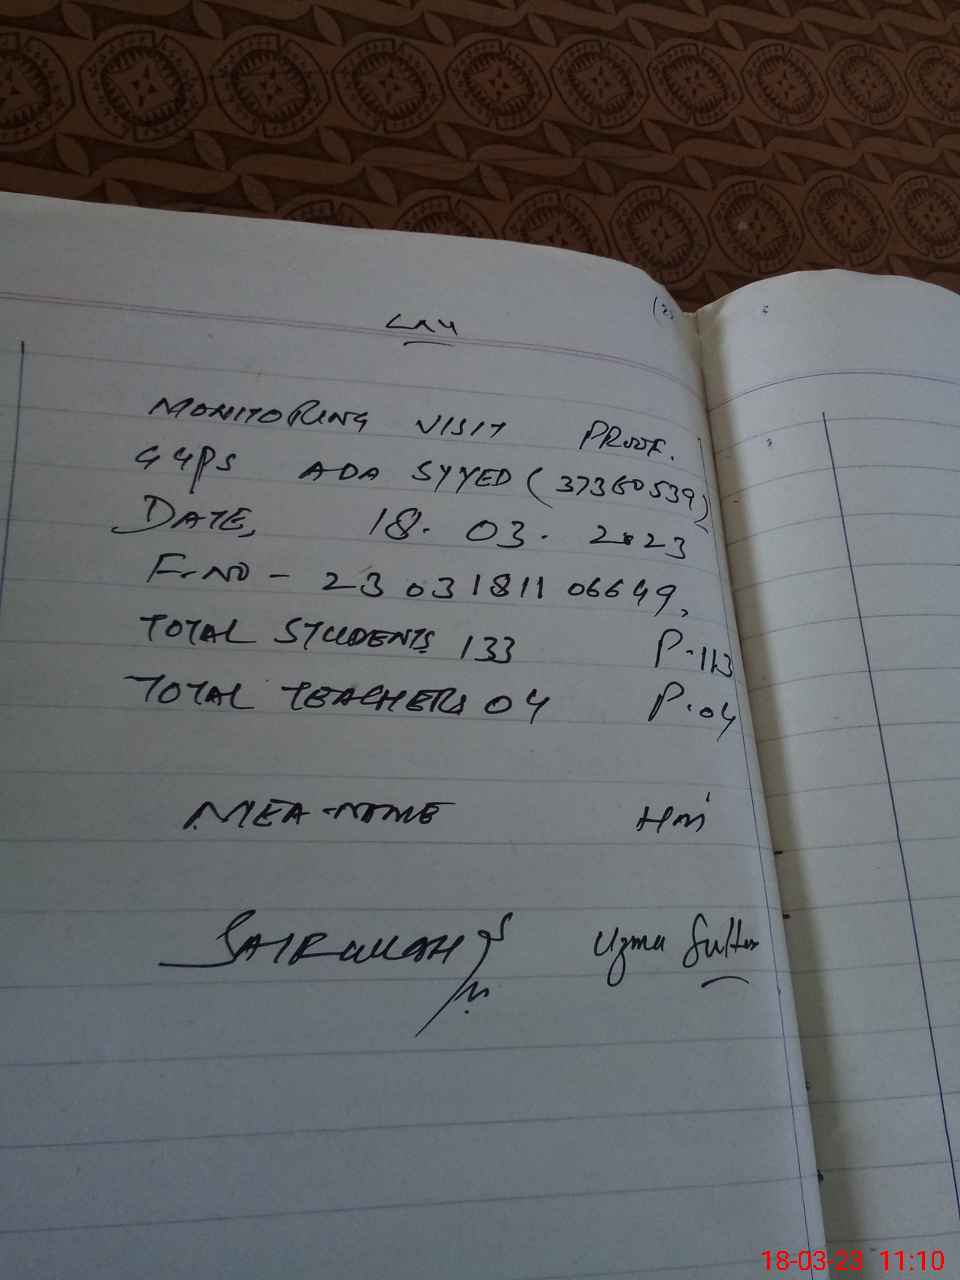 MONITORING VISIT PROOF.
GGPS ADA SYYED (37360539)
DATE, 18. 03. 2023
F.NO - 23 03 1811 06649,
TOTAL STUDENTS 133 P.113
TOTAL TEACHERS 04 P.04
MEA-NAME HM
Uzma Sultan
18-03-23 11:10